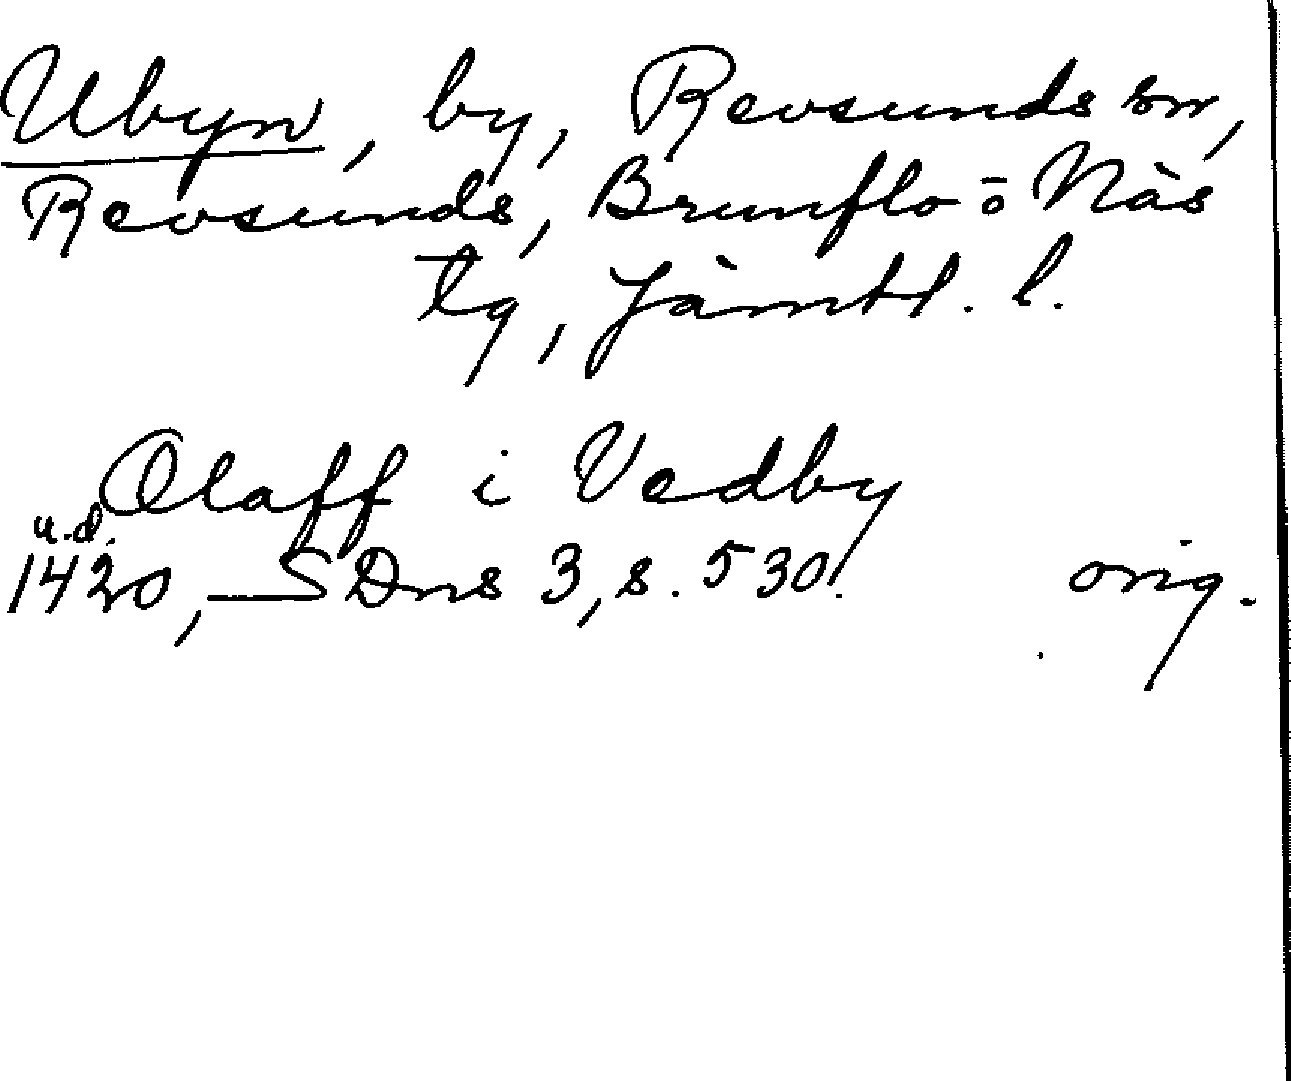 Ubyn, by, Revsunds sn,
Revsunds, Brunflo ō Näs
tg, Jämtl. l.
Olaff i Vedby
u.d.
1420, SDns 3, s. 530. orig.